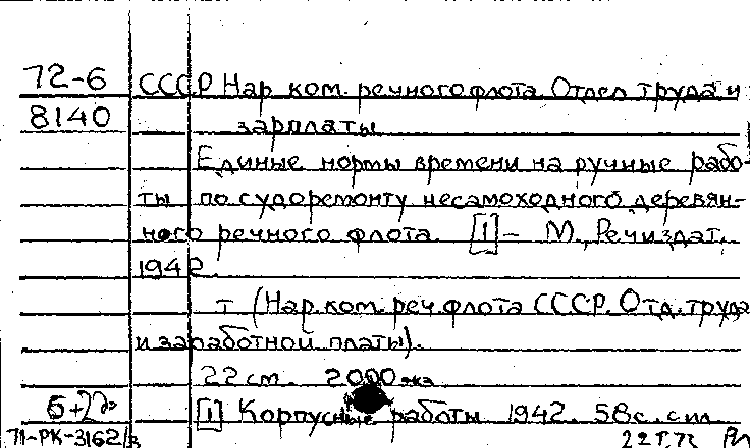 72-6 СССР Нар. ком. речного флота. Отдел труда и
8140 зарплаты
Единые нормы времени на ручные рабо-
ты по судоремонту несамоходного деревян-
ного речного флота. [1] – М., Речиздат,
1942.
т (Нар. ком. реч. флота СССР. Отд. труда
и заработной платы).
22 см. 2000 экз
[1] Корпусные работы 1942. 58 с. с ил
71-РК-3162/3